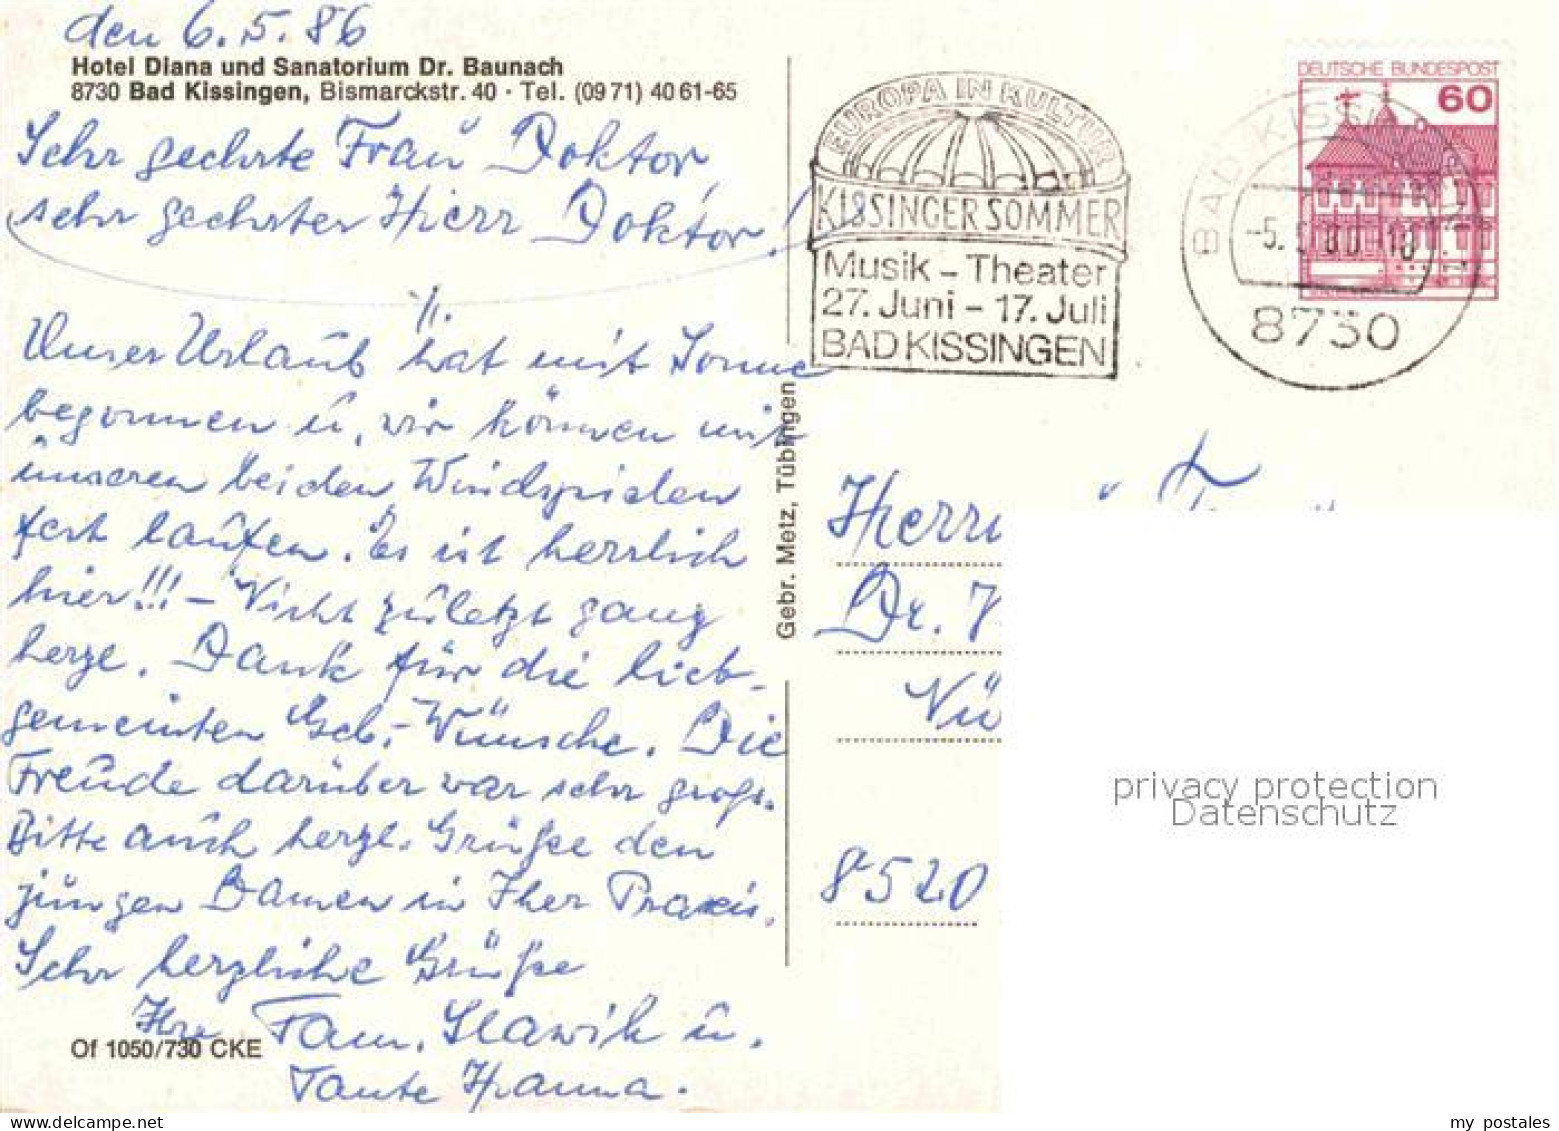 den 6.5.86
Hotel Diana und Sanatorium Dr. Baunach
8730 Bad Kissingen, Bismarckstr. 40 · Tel. (09 71) 40 61-65
Sehr geehrte Frau Doktor,
sehr geehrter Herr Doktor!
Unser Urlaub hat mit Sonne
begonnen u. wir können mit
unseren beiden Windspielen
fest laufen. Es ist herrlich
hier!!! - Nicht zuletzt ganz
herzl. Dank für die lieb-
gemeinten Geb.-Wünsche. Die
Freude darüber war sehr groß.
Bitte auch herzl. Grüße den
jungen Damen in Ihrer Praxis.
Sehr herzliche Grüße
Ihre Fam. Slawik u.
Tante Hanna.
Of 1050/730 CKE
Gebr. Metz, Tübingen
EUROPA IN KULTUR
KISSINGER SOMMER
Musik - Theater
27. Juni - 17. Juli
BAD KISSINGEN
DEUTSCHE BUNDESPOST
60
BAD KISSINGEN
8730
Herrn
Dr.
Nü
8520
privacy protection
Datenschutz
my postales